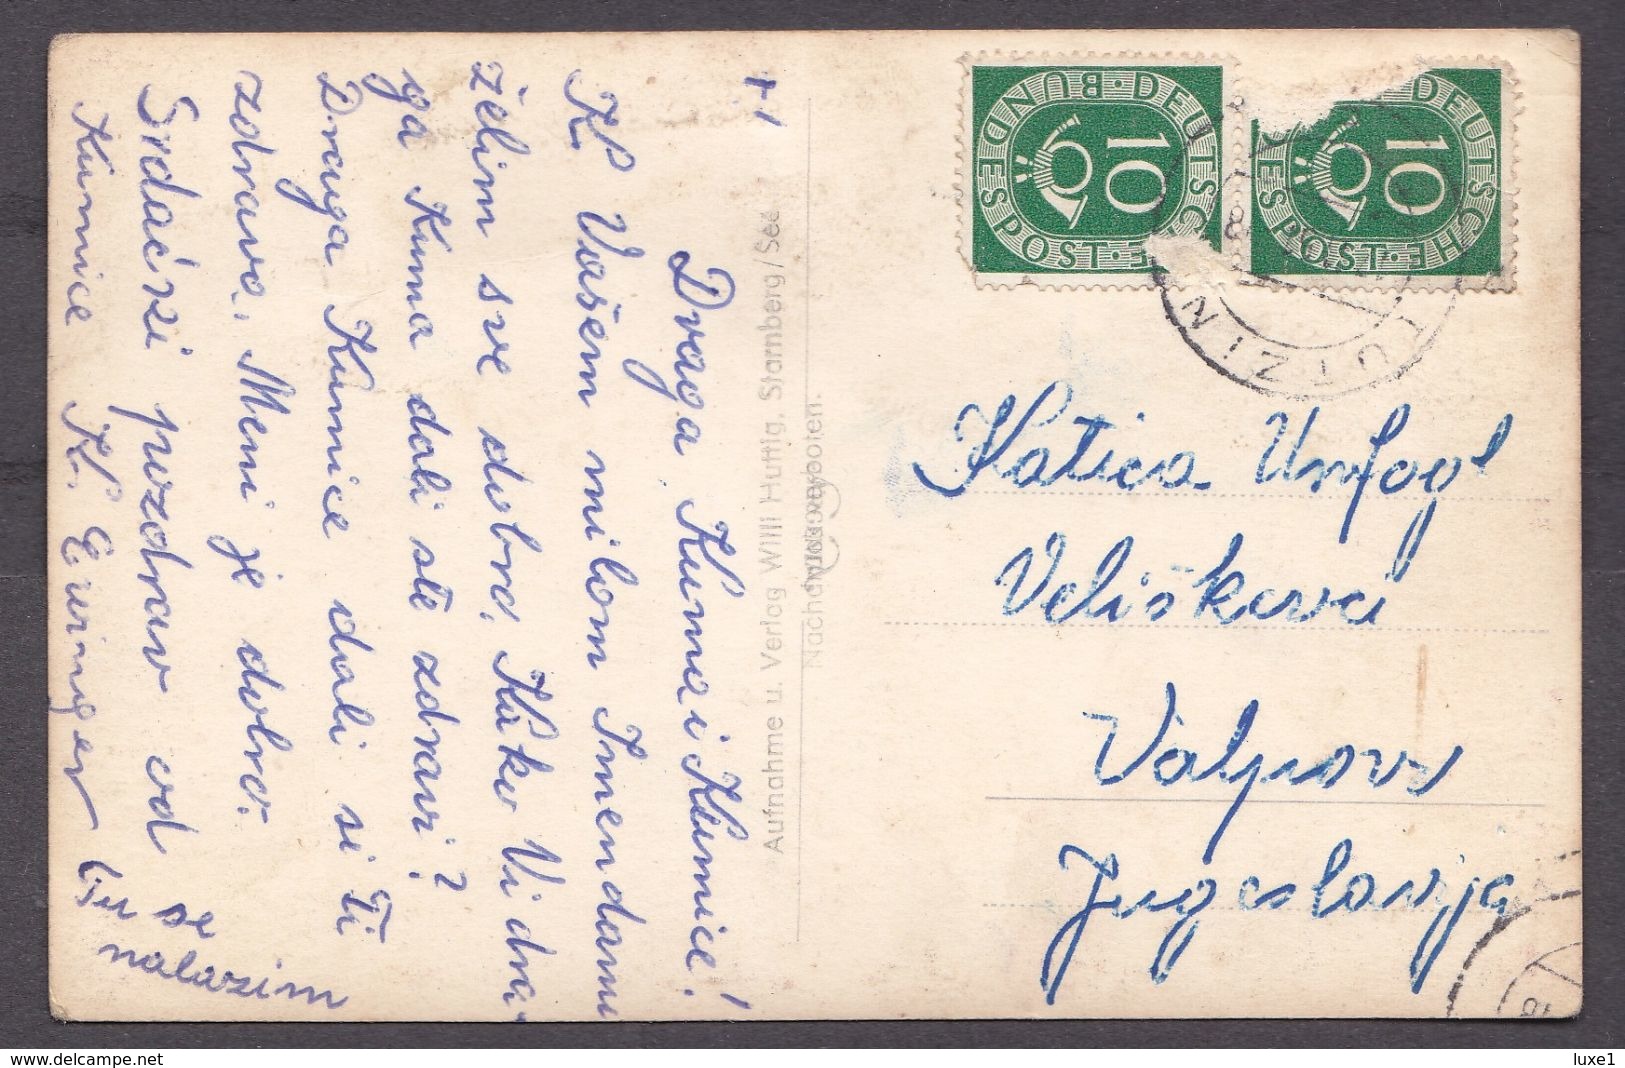 +1
Draga Kuma i Kumice!
K. Vašem milom Imendamu
želim sve dobro. Kako Vi dra-
ga Kuma dali ste zdravi?
Draga Kumice dali si Ti
zdrava. Meni je dobro.
Srdački pozdrav od
Kumice K. Eringer
tu se
nalazim
Aufnahme u. Verlag Willi Huttig, Starnberg/See
Nachdruck verboten.
DEUTSCHE BUNDESPOST
10
DEUTSCHE
10
DESPOST
TUTZIN
Katica Unfogl
Veliškovci
Valpovo
Jugoslavija
luxe1
delcampe.net